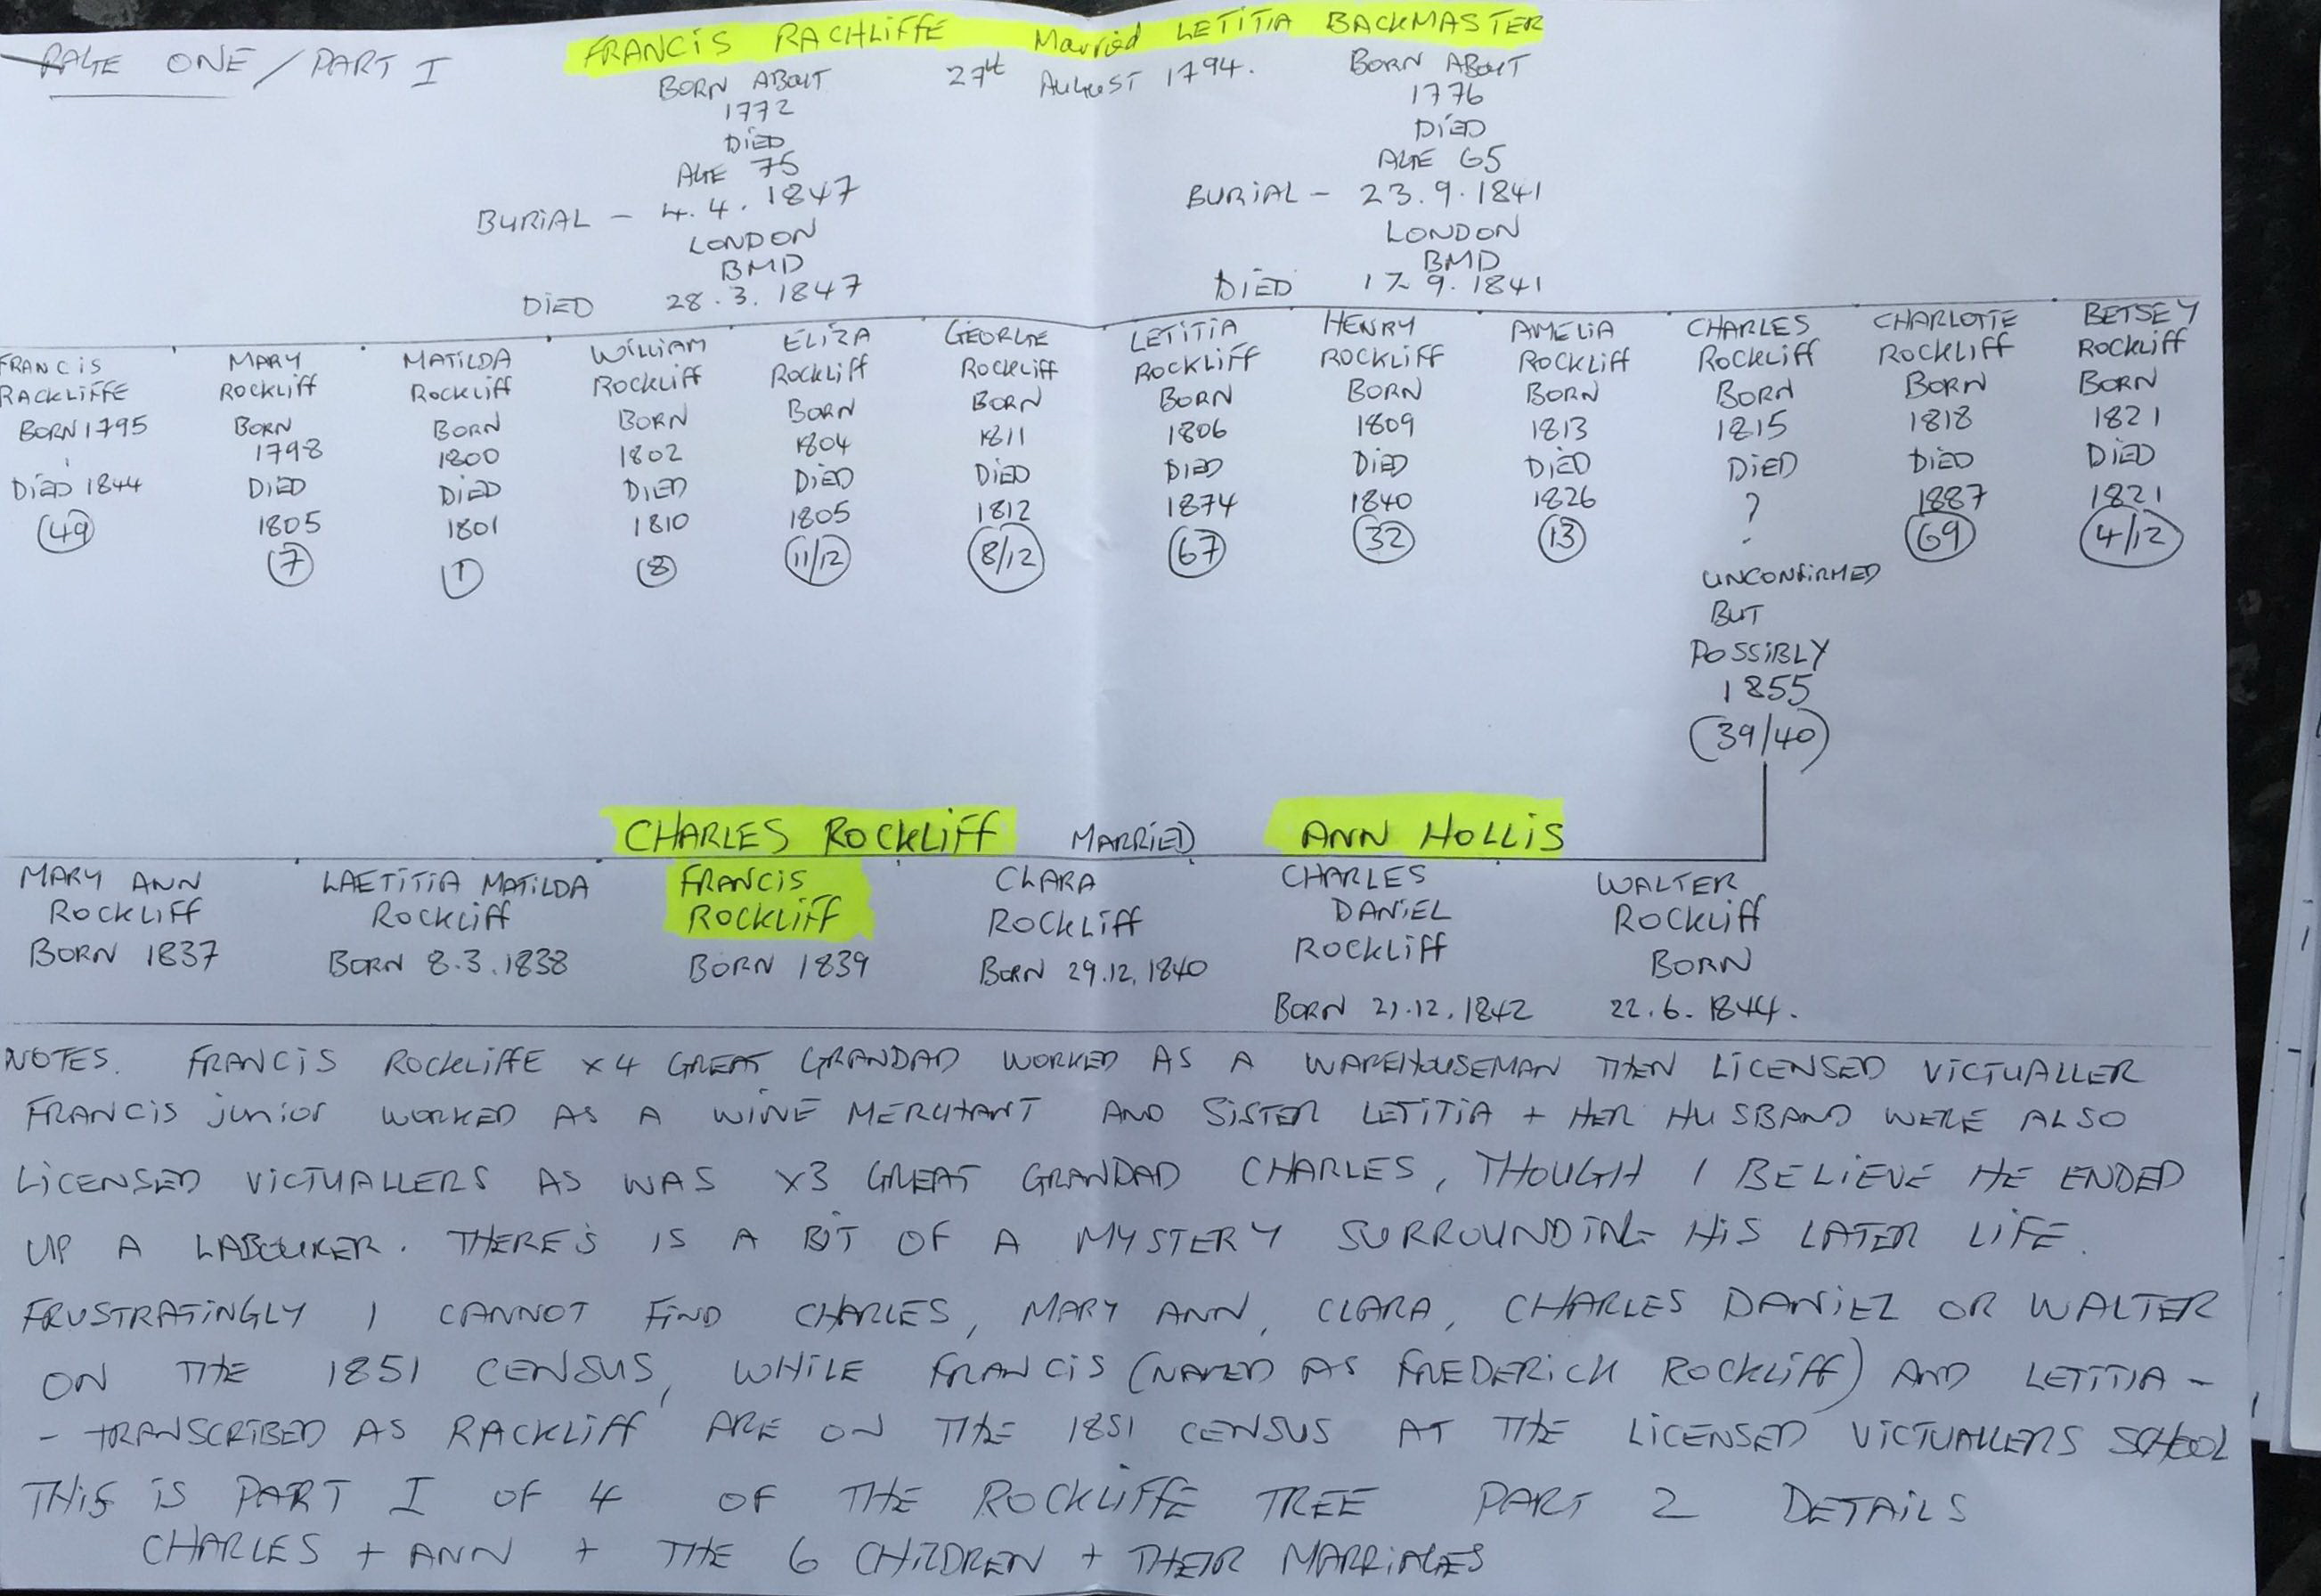 PAGE ONE / PART I
FRANCIS RACHLIFFE Married LETITIA BACKMASTER
27th AUGUST 1794.
BORN ABOUT
1772
DIED
AGE 75
BURIAL - 4.4.1847
LONDON
BMD
DIED 28.3.1847
BORN ABOUT
1776
DIED
AGE 65
BURIAL - 23.9.1841
LONDON
BMD
DIED 17.9.1841
FRANCIS
RACKLIFFE
BORN 1795
DIED 1844
49
MARY
ROCKLIFF
BORN
1798
DIED
1805
7
MATILDA
ROCKLIFF
BORN
1800
DIED
1801
1
WILLIAM
ROCKLIFF
BORN
1802
DIED
1810
8
ELIZA
ROCKLIFF
BORN
1804
DIED
1805
11/12
GEORGE
ROCKLIFF
BORN
1811
DIED
1812
8/12
LETITIA
ROCKLIFF
BORN
1806
DIED
1874
67
HENRY
ROCKLIFF
BORN
1809
DIED
1840
32
AMELIA
ROCKLIFF
BORN
1813
DIED
1826
13
CHARLES
ROCKLIFF
BORN
1815
DIED
?
UNCONFIRMED
BUT
POSSIBLY
1855
(39/40)
CHARLOTTE
ROCKLIFF
BORN
1818
DIED
1887
69
BETSEY
ROCKLIFF
BORN
1821
DIED
1821
4/12
CHARLES ROCKLIFF MARRIED ANN HOLLIS
MARY ANN
ROCKLIFF
BORN 1837
LAETITIA MATILDA
ROCKLIFF
BORN 8.3.1838
FRANCIS
ROCKLIFF
BORN 1839
CLARA
ROCKLIFF
BORN 29.12.1840
CHARLES
DANIEL
ROCKLIFF
BORN 21.12.1842
WALTER
ROCKLIFF
BORN
22.6.1844.
NOTES. FRANCIS ROCKLIFFE x4 GREAT GRANDAD WORKED AS A WAREHOUSEMAN THEN LICENSED VICTUALLER
FRANCIS junior WORKED AS A WINE MERCHANT AND SISTER LETITIA + HER HUSBAND WERE ALSO
LICENSED VICTUALLERS AS WAS x3 GREAT GRANDAD CHARLES, THOUGH I BELIEVE HE ENDED
UP A LABOURER. THERE'S IS A BIT OF A MYSTERY SURROUNDING HIS LATER LIFE.
FRUSTRATINGLY I CANNOT FIND CHARLES, MARY ANN, CLARA, CHARLES DANIEL OR WALTER
ON THE 1851 CENSUS, WHILE FRANCIS (NAMED AS FREDERICK ROCKLIFF) AND LETITIA -
- TRANSCRIBED AS RACKLIFF ARE ON THE 1851 CENSUS AT THE LICENSED VICTUALLERS SCHOOL
THIS IS PART I OF 4 OF THE ROCKLIFFE TREE PART 2 DETAILS
CHARLES + ANN + THE 6 CHILDREN + THEIR MARRIAGES